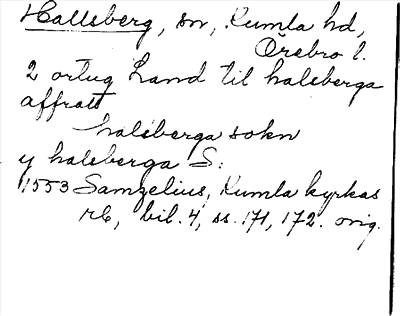 Hallsberg, sn, Kumla hd,
Örebro l.
2 ortug Land til halsberga
affratt
halsberga sokn
y halsberga S:
1553 Samzelius, Kumla kyrkas
rb, bil. 4, ss. 171, 172. orig.